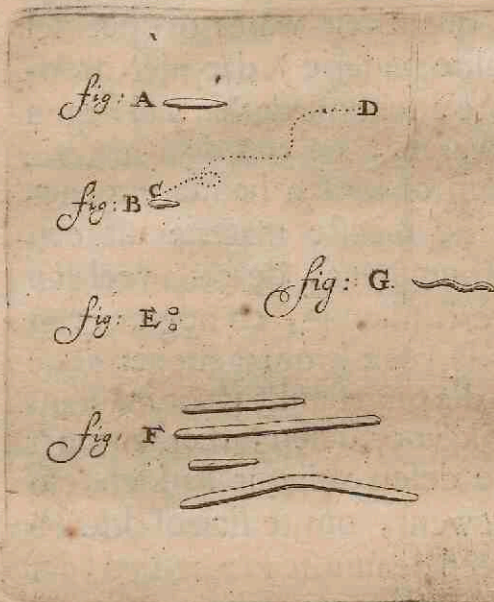 fig: A
D
C
fig: B
fig: G.
fig: E
fig. F